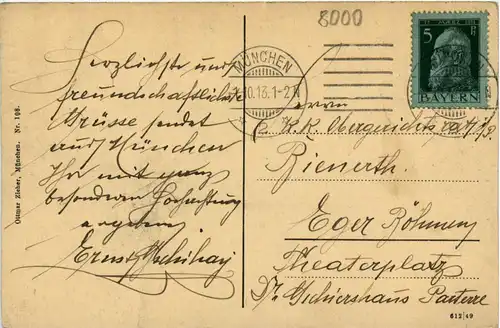 8000
12. MÄRZ 1911
5 Pf
BAYERN
MÜNCHEN
10.13.1-2 N
Herzlichste und
freundschaftlichste
Grüsse sendet
aus München
Ihr mit ganz
besonderer Hochachtung
ergebener
Ernst
Herrn
K. K. Obergerichtsrat i/P.
Bienerth.
Eger Böhmen
Theaterplatz
Parterre
Ottmar Zieher, München. Nr. 108.
612|49